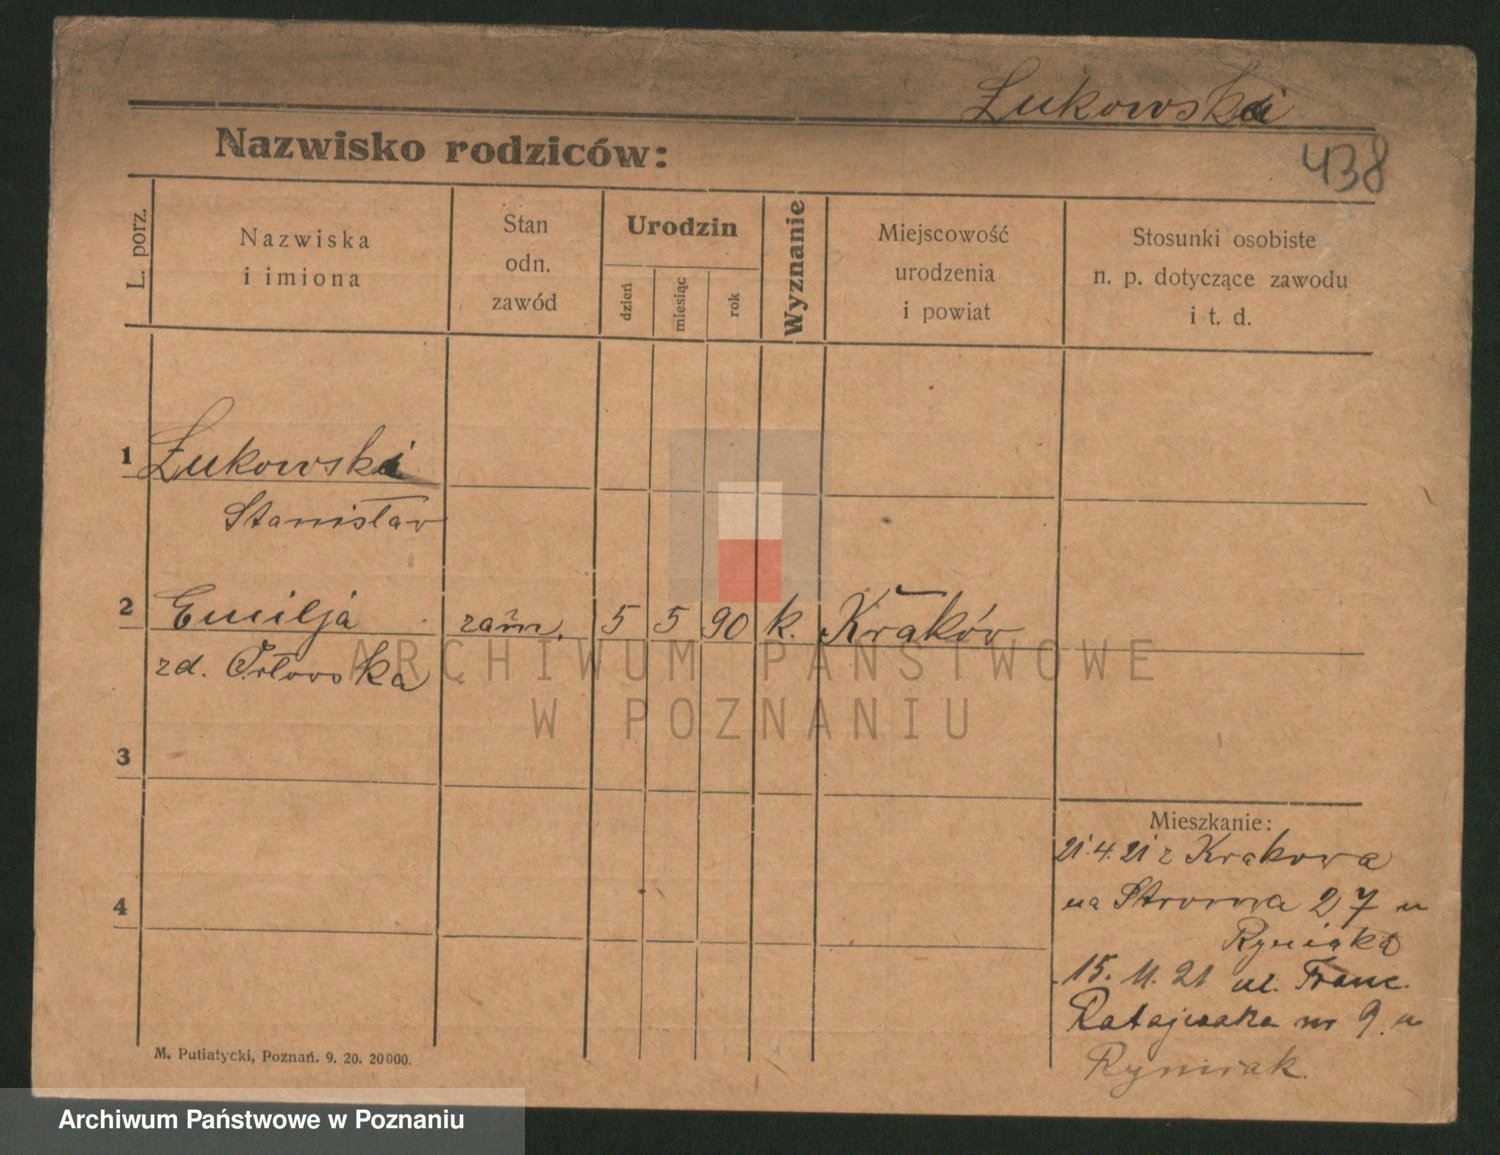 Łukowski
438
Nazwisko rodziców:
L. porz.
Nazwiska
i imiona
Stan
odn.
zawód
Urodzin
dzień
miesiąc
rok
Wyznanie
Miejscowość
urodzenia
i powiat
Stosunki osobiste
n. p. dotyczące zawodu
i t. d.
1 Łukowski
Stanisław
2 Emilja zam. 5 5 90 k. Kraków
zd. Orłowska
3
4
Mieszkanie:
21.4.21 z Krakowa
na Stroma 27 u
Ryniaka
15. 11. 21 ul. Franc.
Ratajczaka nr 9. u
Ryniak
M. Putiatycki, Poznań. 9. 20. 20000.
ARCHIWUM PAŃSTWOWE
W POZNANIU
Archiwum Państwowe w Poznaniu